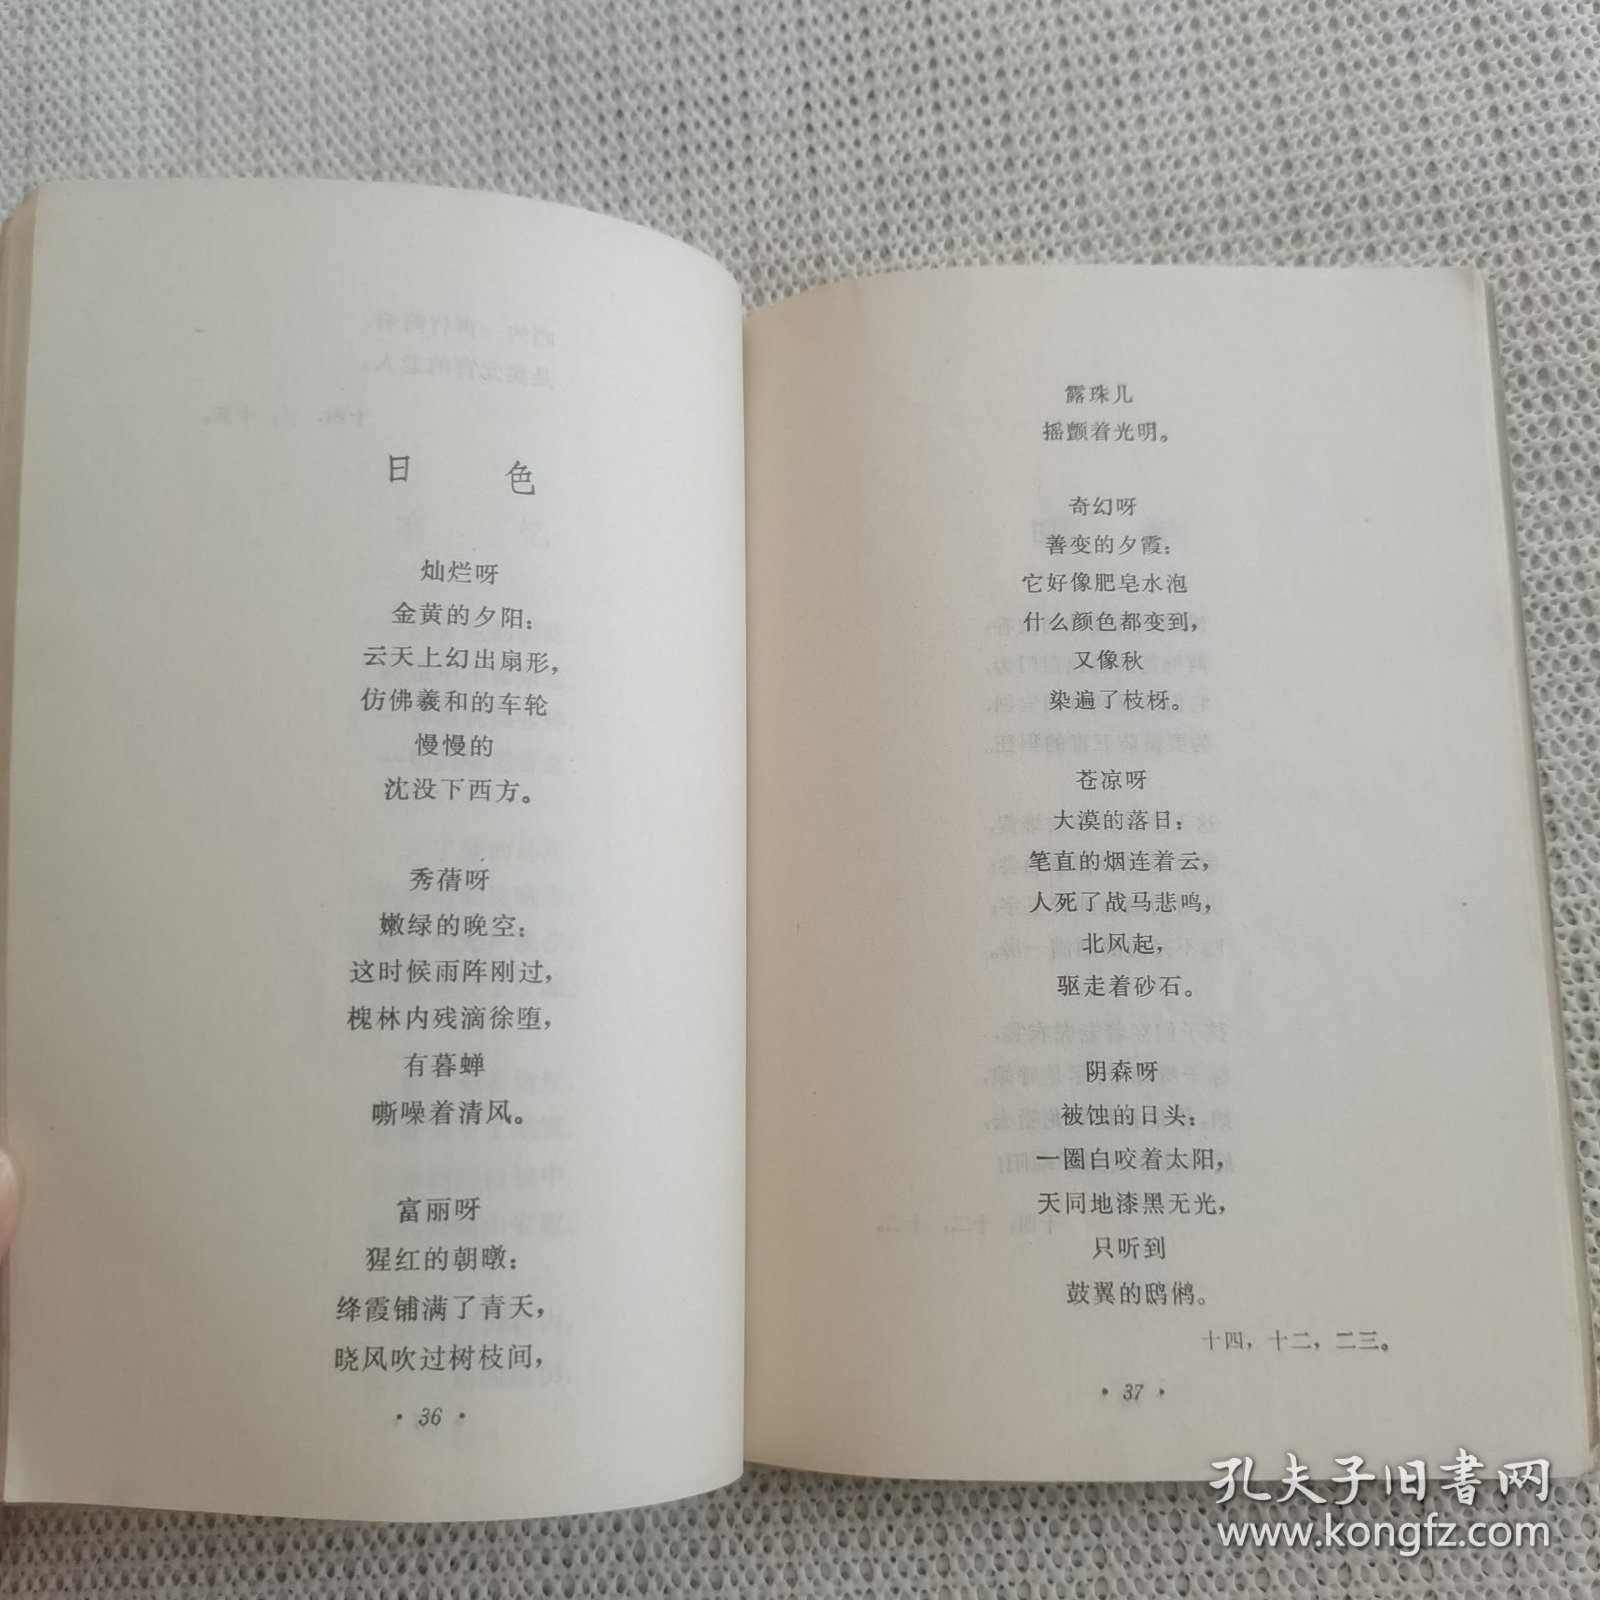 日 色
灿烂呀
金黄的夕阳：
云天上幻出扇形，
仿佛羲和的车轮
慢慢的
沈没下西方。
秀蒨呀
嫩绿的晚空：
这时候雨阵刚过，
槐林内残滴徐堕，
有暮蝉
嘶噪着清风。
富丽呀
猩红的朝暾：
绛霞铺满了青天，
晓风吹过树枝间，
·36·
露珠儿
摇颤着光明。
奇幻呀
善变的夕霞：
它好像肥皂水泡
什么颜色都变到，
又像秋
染遍了枝枒。
苍凉呀
大漠的落日：
笔直的烟连着云，
人死了战马悲鸣，
北风起，
驱走着砂石。
阴森呀
被蚀的日头：
一圈白咬着太阳，
天同地漆黑无光，
只听到
鼓翼的鸱鸺。
十四，十二，二三。
·37·
孔夫子旧书网
www.kongfz.com